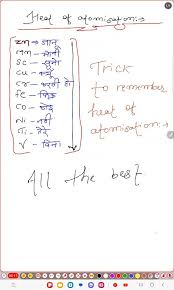 Heat of atomisation:→
Zn → जानू
Mn → मेरी
Sc → सुनो
Cu → क्यों
Cr → करती हो
Fe →
Co →
Ni → नहीं
Ti → तेरे
V → बिना
Trick
to remember
heat of
atomisation:→
All the best